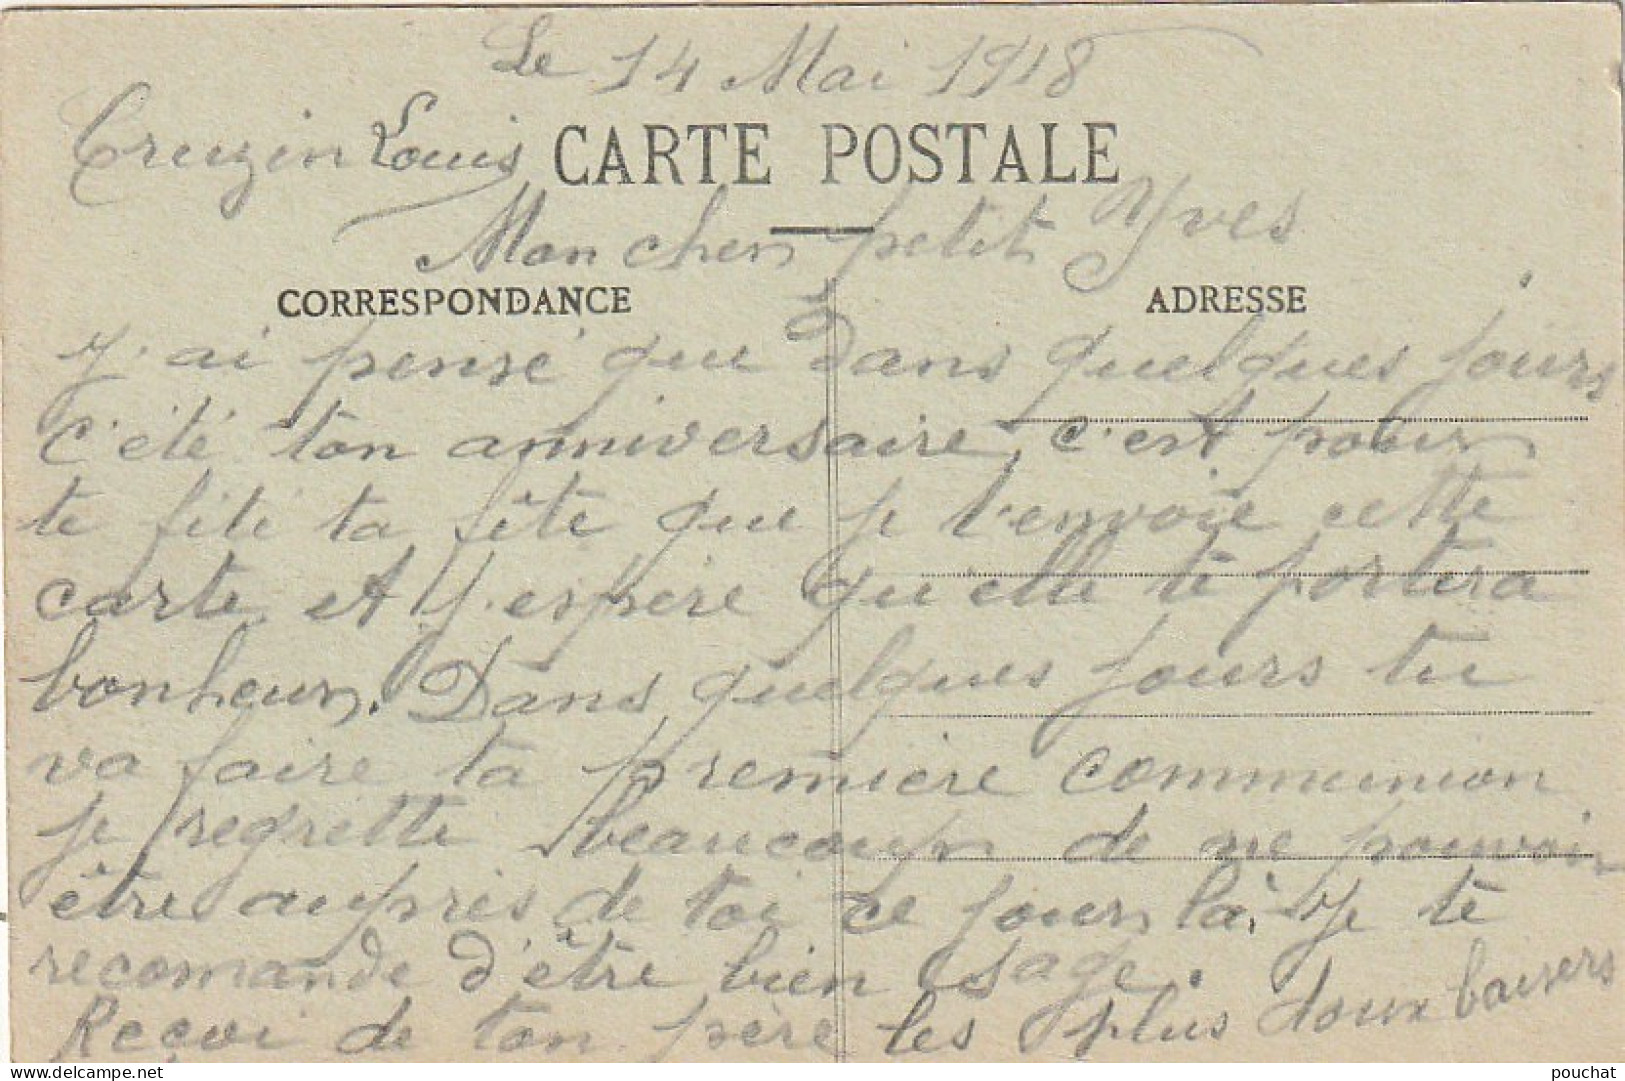 Le 14 Mai 1918
Cruzin Louis CARTE POSTALE
Mon cher petit Yves
CORRESPONDANCE ADRESSE
J'ai pensé que Dans quelques jours
c'été ton anniversaire, c'est pour
te fité ta fête que je t'envoie cette
carte et j'espère qu'elle te portera
bonheur. Dans quelques jours tu
va faire ta première communion
je regrette beaucoup de ne pouvoir
être auprès de toi ce jour là. Je te
recomande d'être bien sage.
Reçoi de ton père les plus doux baisers
pouchat